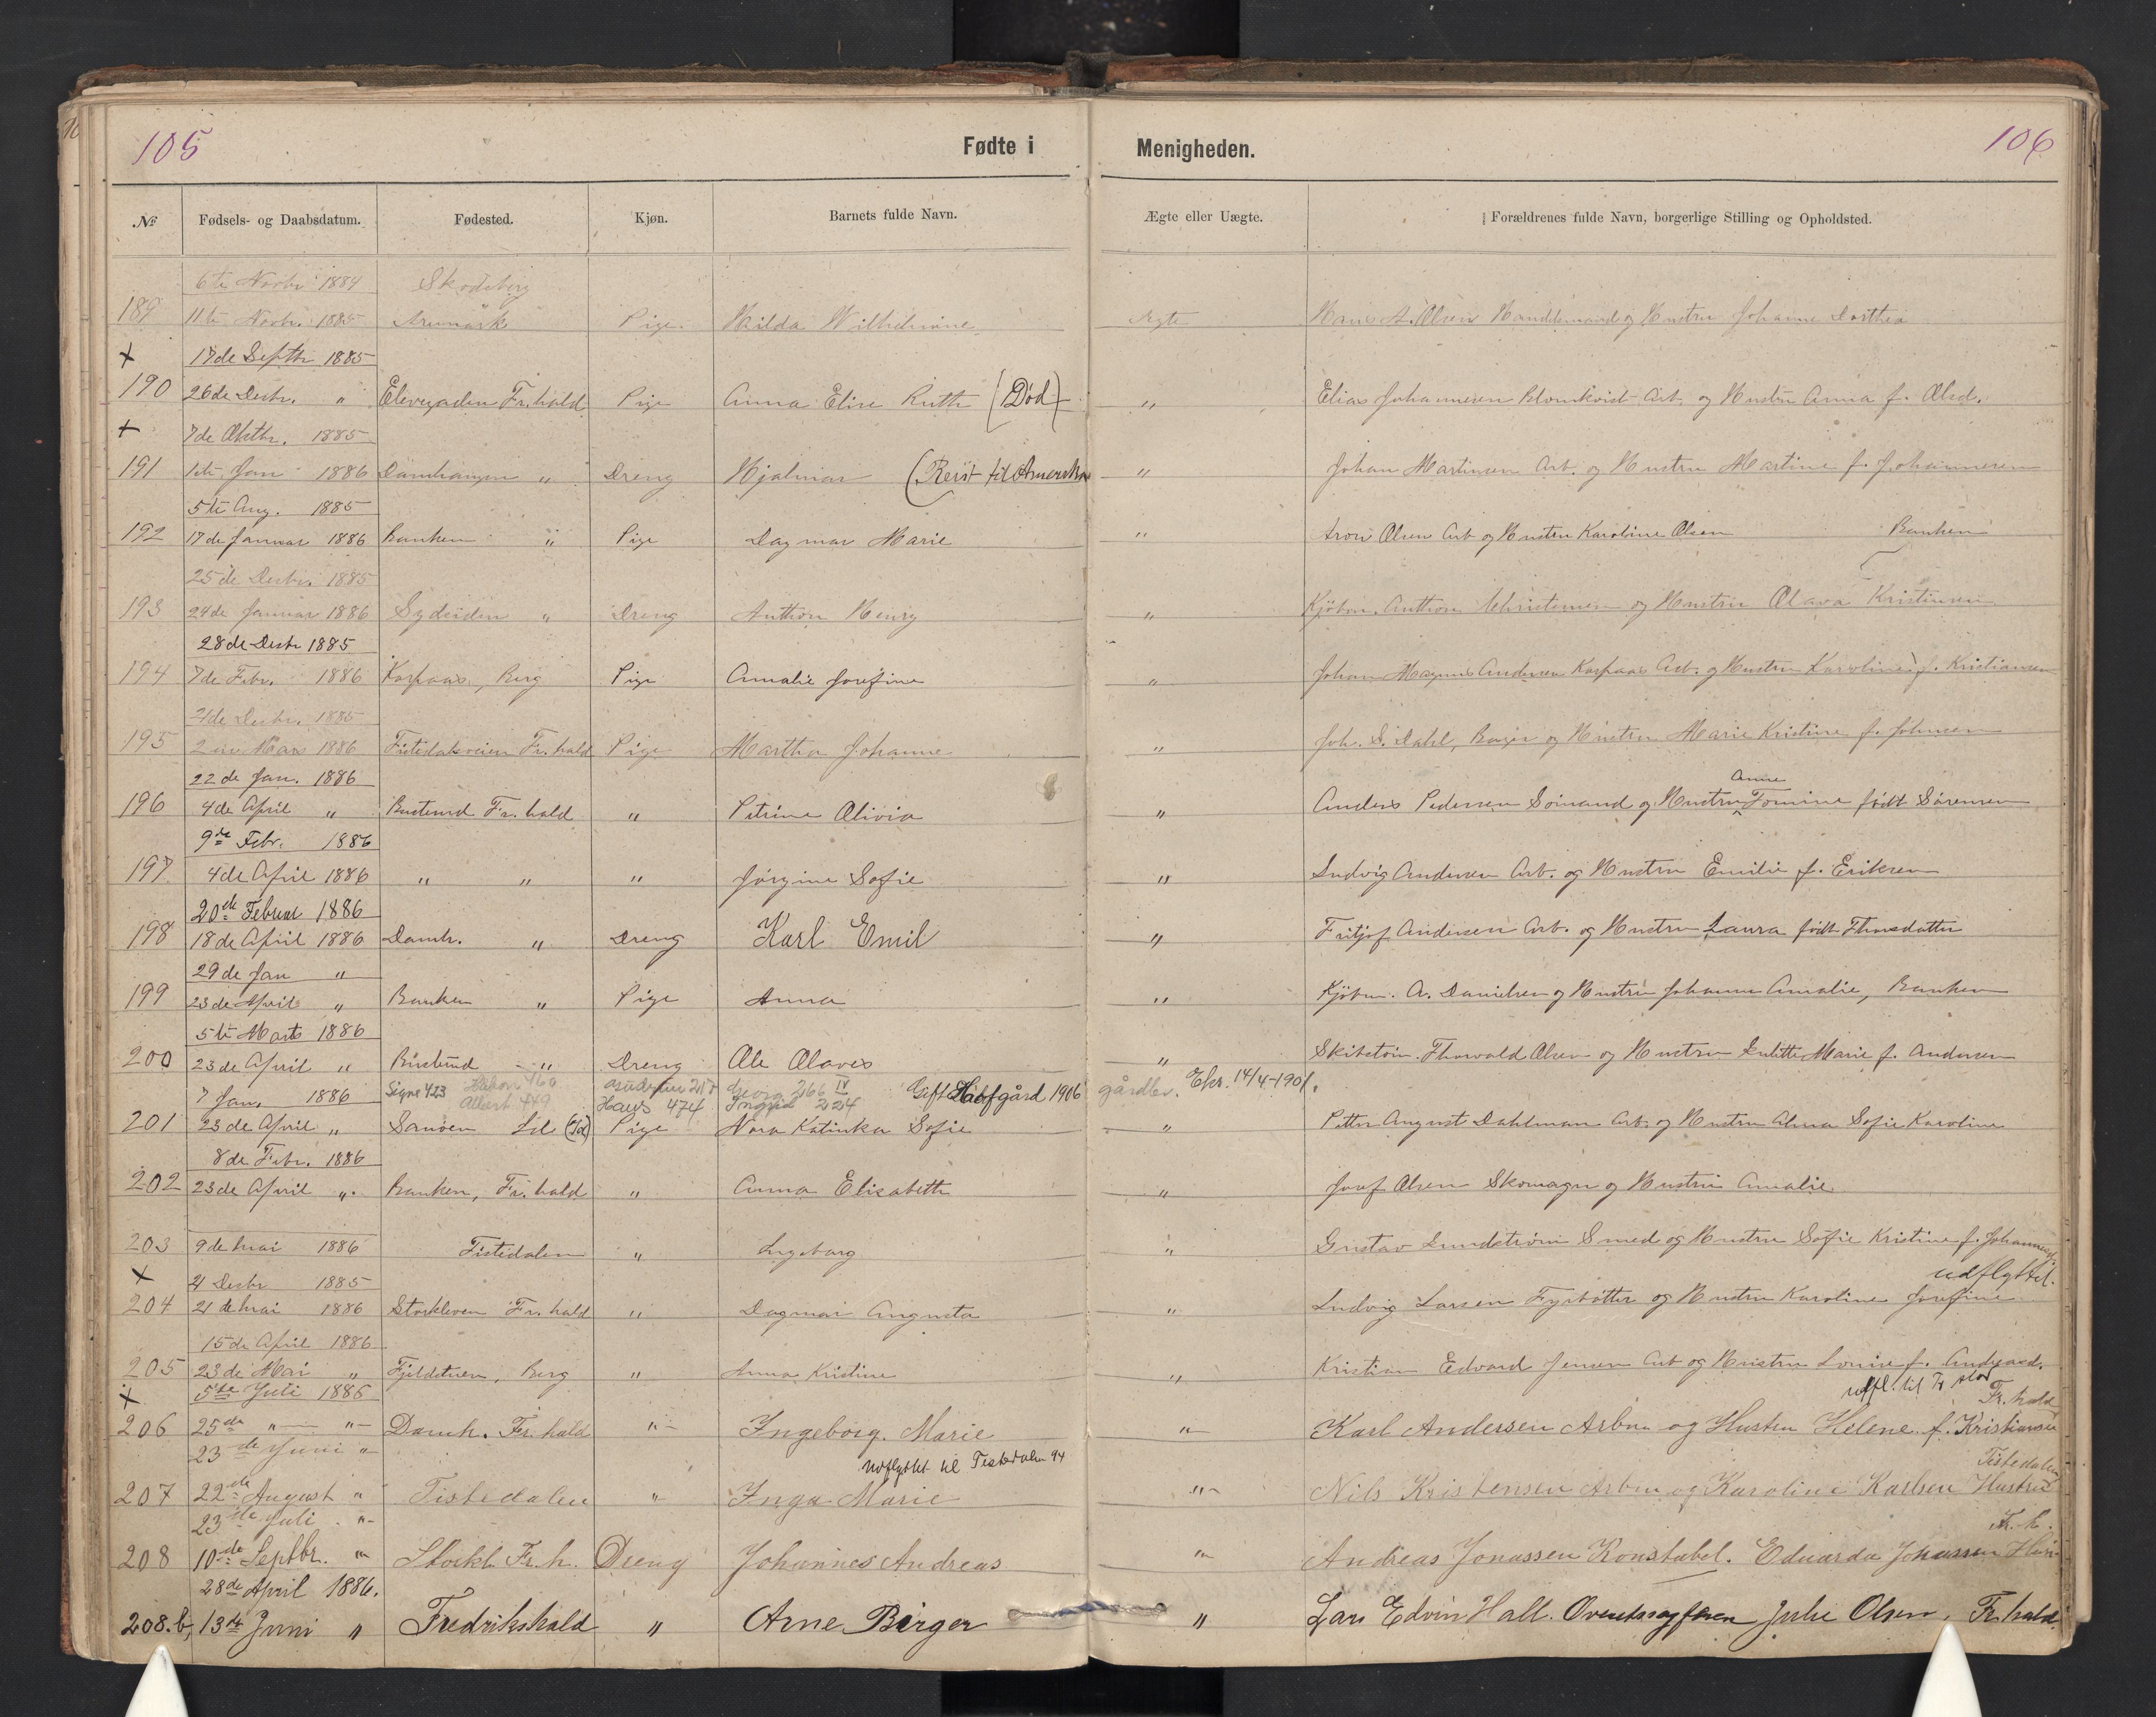 105
Fødte i
Menigheden.
106
№ Fødsels- og Daabsdatum. Fødested. Kjøn. Barnets fulde Navn. Ægte eller Uægte. Forældrenes fulde Navn, borgerlige Stilling og Opholdsted.
6te Novbr 1884 Skodsberg
189 11te Novbr. 1885 Aremark Pige. Hilda Wilhelmine Ægte Hans A. Olsen Handelsmand og Hustru Johanne Dorthea
+ 17de Septbr 1885
190 26de Decbr. " Elevegaden Fr.hald Pige Anna Elise Ruth (Død) " Elias Johannesen Blomkvist Arb. og Hustru Anna f. Olsd.
+ 7de Oktbr. 1885
191 1ste Jan 1886 Damhaugen " Dreng Hjalmar (Reist til Amerika " Johan Martinsen Arb. og Hustru Martine f. Johannesen
5te Aug. 1885
192 17de Januar 1886 Banken " Pige Dagmar Marie " Aron Olsen Arb og Hustru Karoline Olsen Banken
25de Decbr. 1885
193 24de Januar 1886 Sydsiden " Dreng Anthon Henry " Kjøbm. Anthon Christensen og Hustru Olava Kristensen
28de Decbr 1885
194 7de Febr. 1886 Korpaas, Berg Pige Amalie Josefine " Johan Magnus Andersen Korpaas Arb. og Hustru Karoline f. Kristiansen
21de Decbr. 1885
195 2den Mars 1886 Fistedalsveien Fr.hald Pige Martha Johanne " Joh. S. Dahl, Bager og Hustru Marie Kristine f. Johnsen
22de Jan. 1886
196 4de April " Busterud Fr.hald " Petrine Olivia " Anders Pedersen Sømand og Hustru Anne Tomine født Sørensen
9de Febr. 1886
197 4de April 1886 " " " Jørgine Sofie " Ludvig Andersen Arb. og Hustru Emilie f. Eriksen
20de Februar 1886
198 18de April 1886 Damh. " Dreng Karl Emil " Fritjof Andersen Arb. og Hustru Laura født Thorsdatter
29de Jan "
199 23de April " Banken " Pige Anna " Kjøbm. A. Danielsen og Hustru Johanne Amalie, Banken
5te Marts 1886
200 23de April " Busterud " Dreng Ole Olaves " Skibstøm. Thorvald Olsen og Hustru Julitte Marie f. Andersen
7 Jan. 1886 Signe 423 Håkon 460 Albert 449 Hans 474 Georg 266 IV Ingrid 224 Gift Hofgård 1906 gårdbr. Ekr. 14/4-1901.
201 23de April " Sanøen Id (Id) Pige Nora Katinka Sofie " Petter August Dahlman Arb. og Hustru Alma Sofie Karoline
8de Febr. 1886
202 23de April " Banken, Fr.hald " Anna Elisabeth " Josef Olsen Skomager og Hustru Amalie
203 9de Mai 1886 Tistedalen " Ingeborg " Gustav Lundstrøm Smed og Hustru Sofie Kristine f. Johannesd
+ 21 Decbr 1885 udflyttet.
204 21de Mai 1886 Storkleven Fr.hald " Dagmar Augusta " Ludvig Larsen Fyrbøtter og Hustru Karoline Josefine
15de April 1886
205 23de Mai " Fjeldstuen, Berg " Anna Kristine " Kristian Edvard Jensen Arb og Hustru Lovise f. Andreasd.
+ 5te Juli 1886 udfl. til Fr.stad Fr.hald
206 25de " " Damh. Fr.hald " Ingeborg Marie " Karl Andersen Arbm og Hustru Helene f. Kristiansen
23de Juni " Udflyttet til Tistedalen 94 Tistedalen
207 22de August " Tistedalen " Inga Marie " Nils Kristensen Arbm og Karoline Karlsen Hustru
23de Juli " Fr.h.
208 10de Septbr. " Storkl. Fr.h. Dreng Johannes Andreas " Andreas Jonassen Konstabel. Eduarda Johnssen Hus
28de April 1886.
208.b, 13de Juni " Fredrikshald " Arne Birger " Lars Edvin Hall. Julie Olsen, Fr.hald.